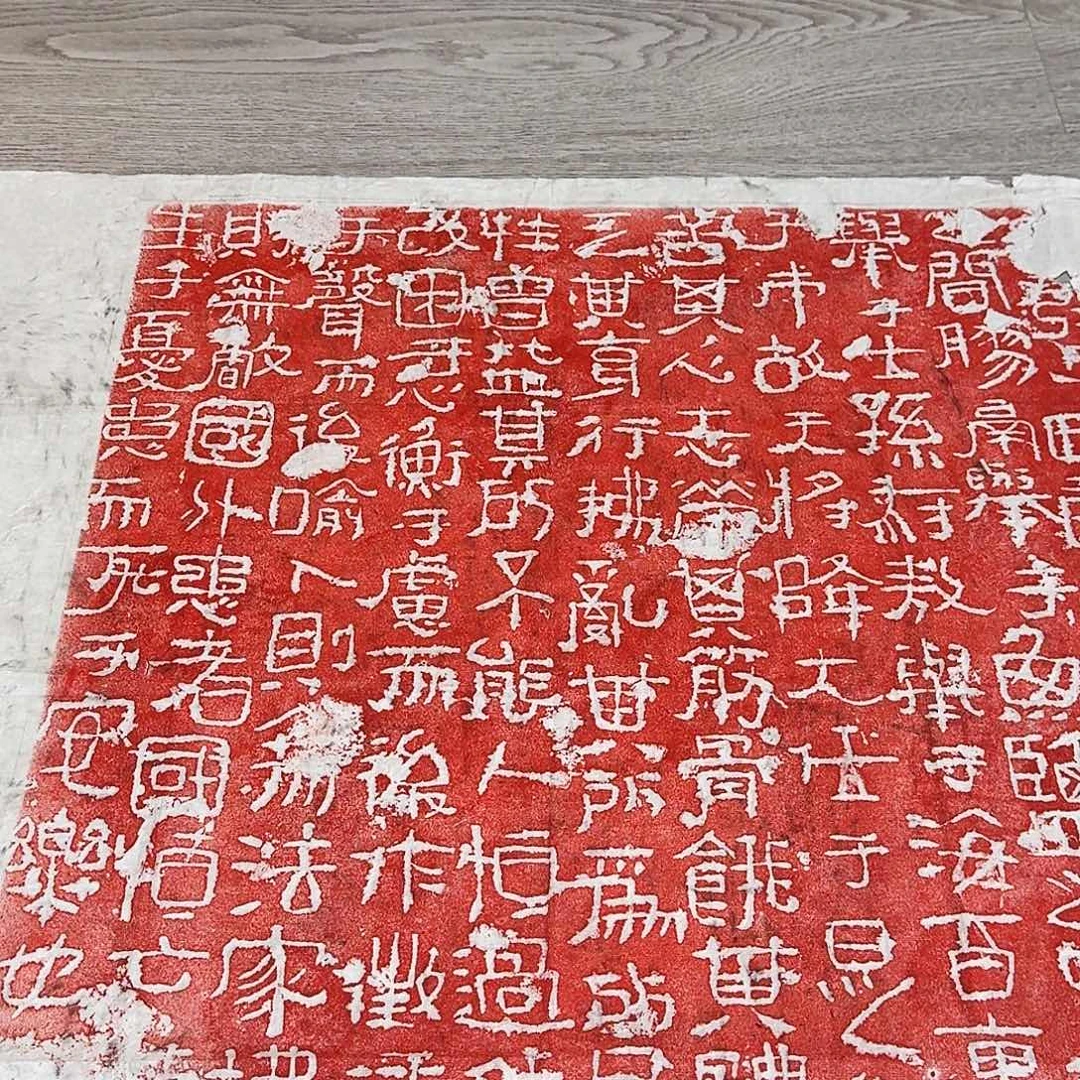 之間膠鬲舉于魚鹽之
舉于士孫叔敖舉于海百里
于市故天將降大任于是人
苦其心志勞其筋骨餓其體
乏其身行拂亂其所爲所
性曾益其所不能人恒過
改困于心衡于慮而後作徵于
于聲而後喻入則無法家拂
則無敵國外患者國恒亡
生于憂患而死于安樂也